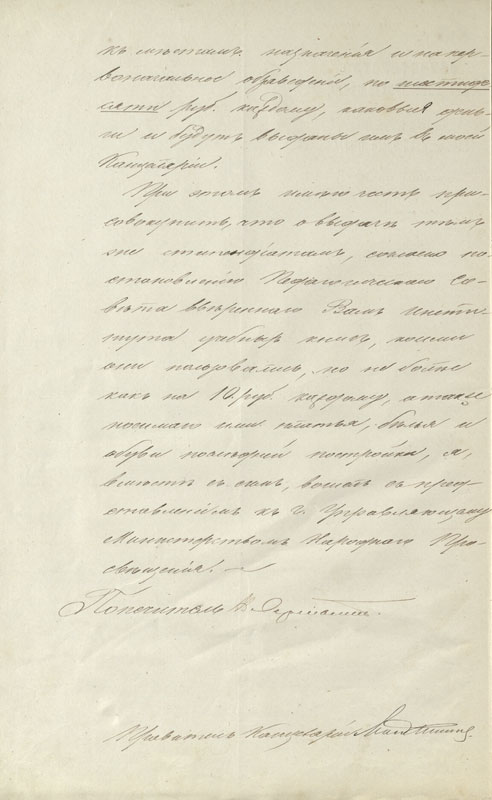 къ мѣстамъ назначенія и на пер-
воначальное обзаведеніе, по пятиде-
сяти руб. каждому, каковыя день-
ги и будутъ выданы имъ въ моей
Канцеляріи.
При этомъ имѣю честь при-
совокупить, что о выдачѣ тѣмъ
же стипендіатамъ, согласно по-
становленію Педагогическаго Со-
вѣта ввѣреннаго Вамъ Инсти-
тута учебныхъ книгъ, коими
они пользовались, но не болѣе
какъ на 10 руб. каждому, а также
носимаго ими платья, бѣлья и
обуви послѣдней постройки, я,
вмѣстѣ съ симъ, вошелъ съ пред-
ставленіемъ къ г. Управляющему
Министерствомъ Народнаго Про-
свѣщенія.
Попечитель
Правитель Канцеляріи